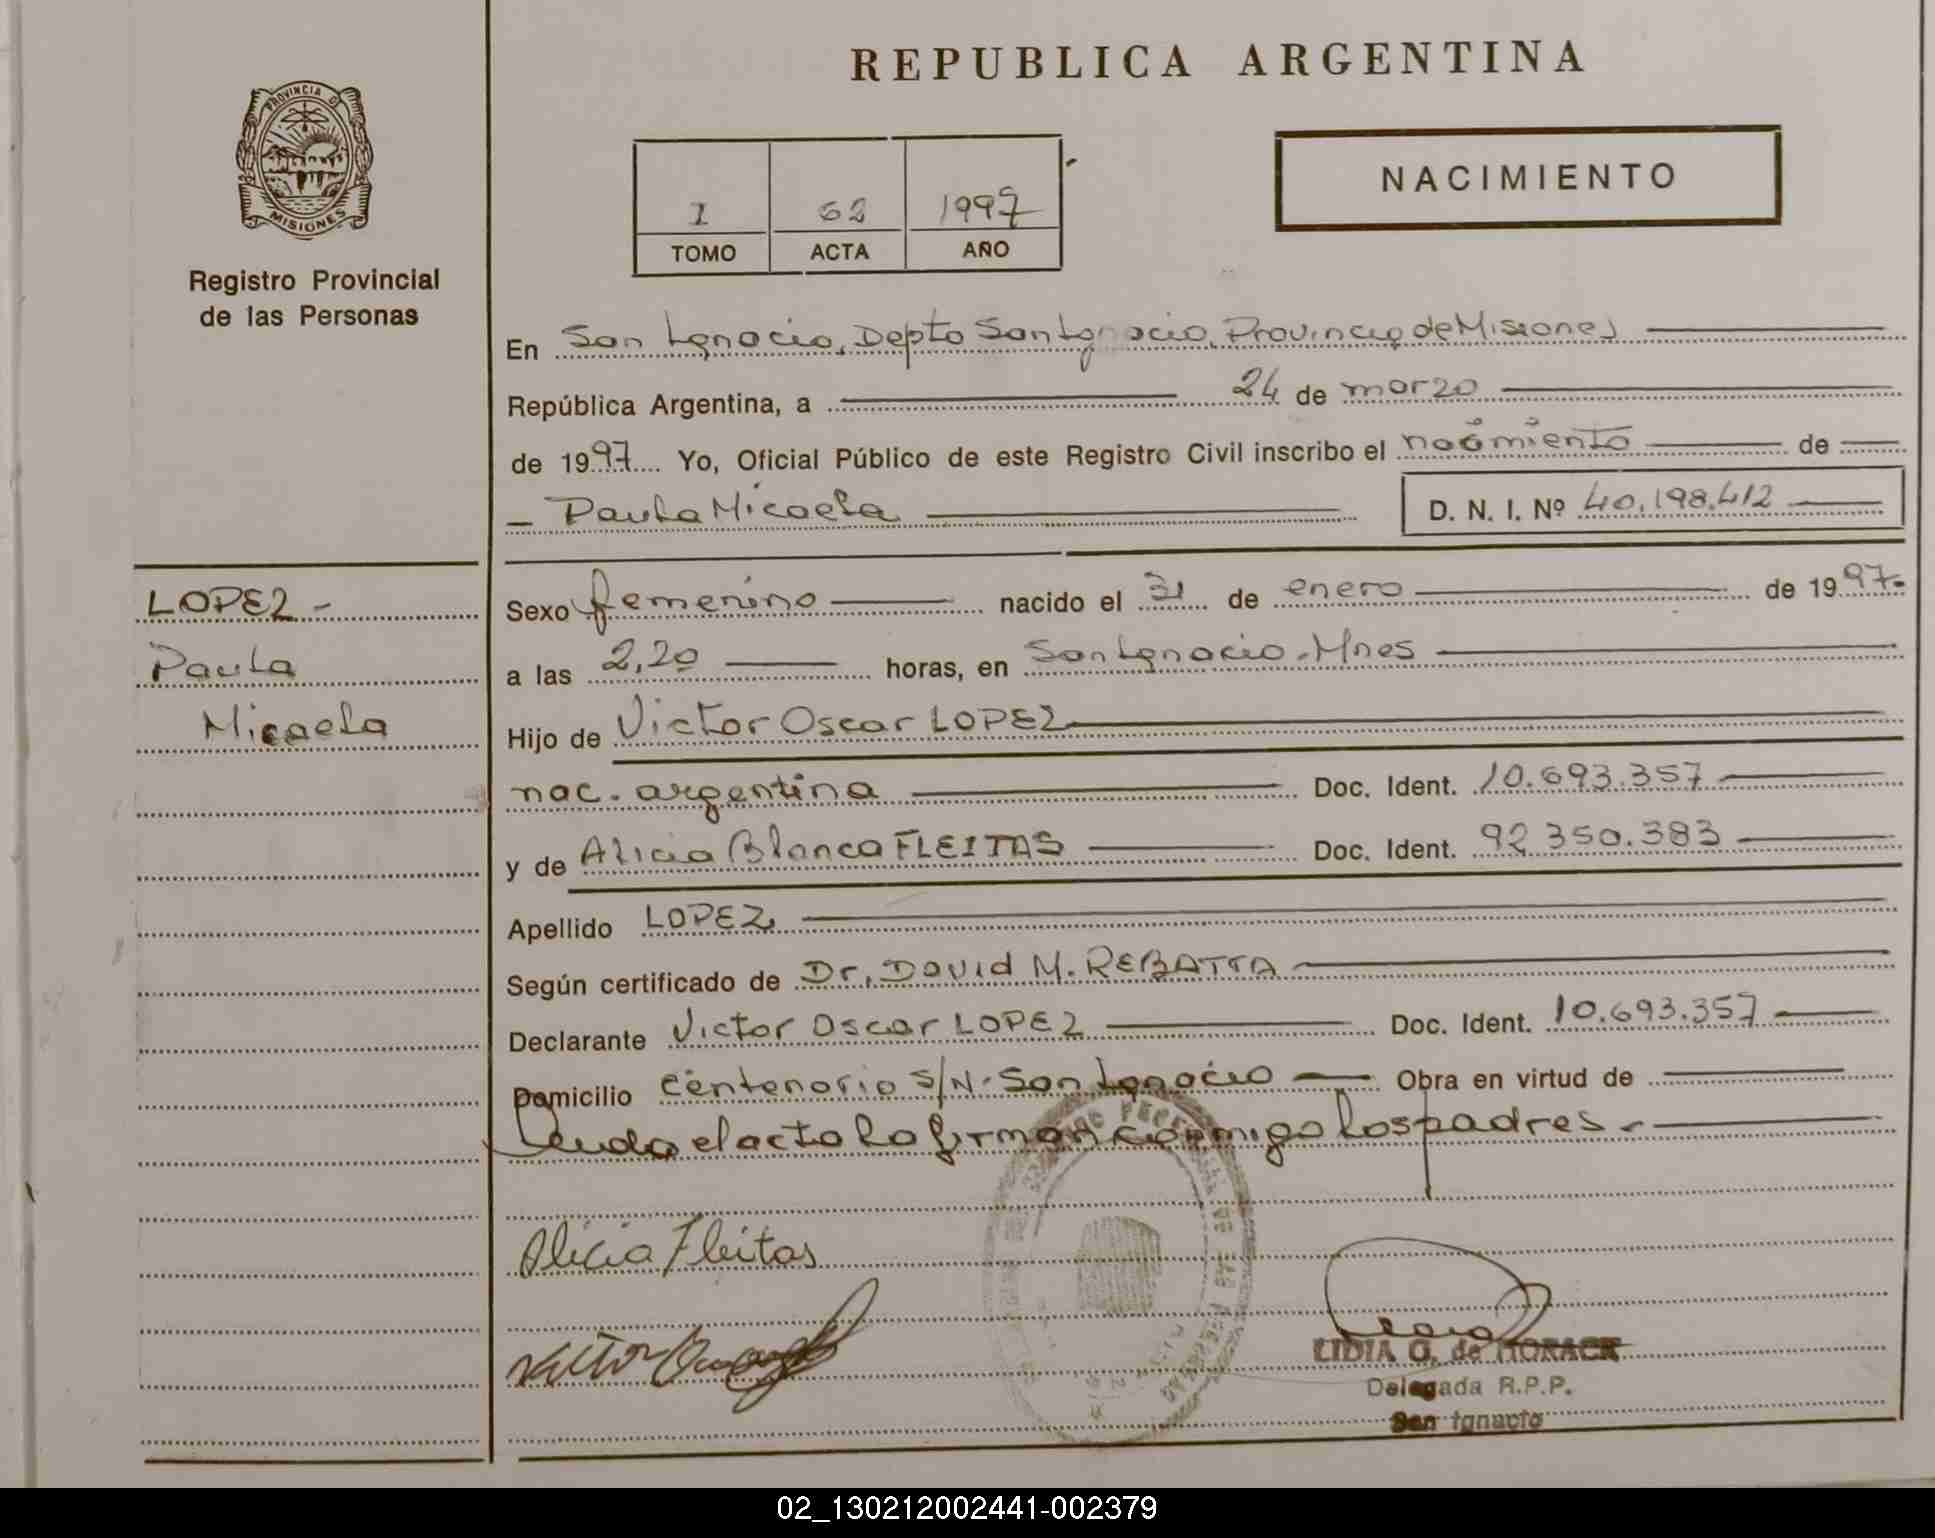 REPUBLICA ARGENTINA
PROVINCIA D
MISIONES
Registro Provincial
de las Personas
NACIMIENTO
I 62 1997
TOMO ACTA AÑO
En San Ignacio, Depto San Ignacio, Provincia de Misiones
República Argentina, a 24 de marzo
de 1997 Yo, Oficial Público de este Registro Civil inscribo el nacimiento de
Paula Micaela D. N. I. Nº 40.198.412
LOPEZ
Paula
Micaela
Sexo femenino nacido el 31 de enero de 1997.
a las 2,20 horas, en San Ignacio - Mnes
Hijo de Victor Oscar LOPEZ
nac. argentina Doc. Ident. 10.693.357
y de Alicia Blanca FLEITAS Doc. Ident. 92.350.383
Apellido LOPEZ
Según certificado de Dr. David M. REBATTA
Declarante Victor Oscar LOPEZ Doc. Ident. 10.693.357
Domicilio Centenario S/N. San Ignacio Obra en virtud de
Leida el acta la firman conmigo los padres.
Alicia Fleitas
Victor
LIDIA G. de
Delegada R.P.P.
San Ignacio
02_130212002441-002379